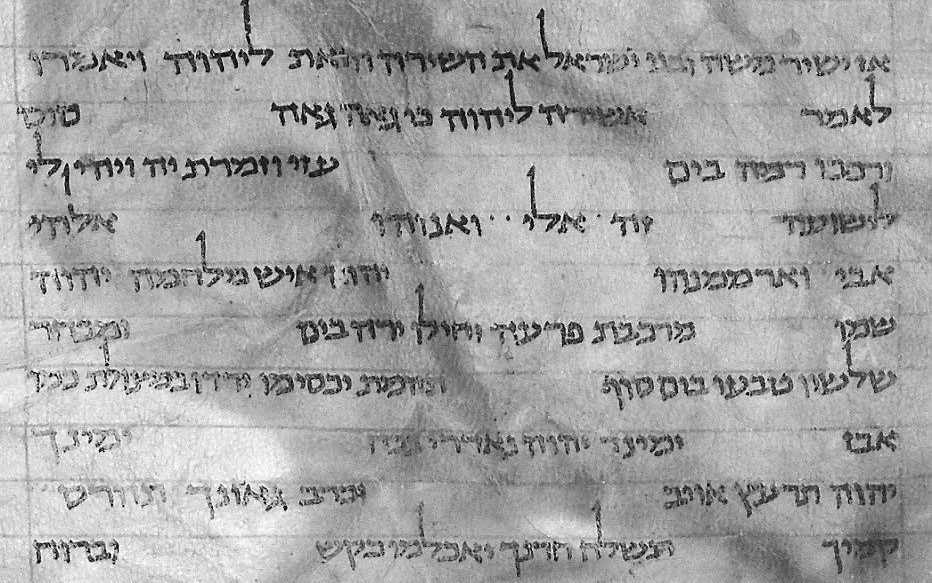 אז ישיר משה ובני ישראל את השירה הזאת ליהוה ויאמרו
לאמר אשירה ליהוה כי גאה גאה סוס
ורכבו רמה בים עזי וזמרת יה ויהי לי
לישועה זה אלי ואנוהו אלהי
אבי וארממנהו יהוה איש מלחמה יהוה
שמו מרכבת פרעה וחילו ירה בים ומבחר
שלשיו טבעו בים סוף תהמת יכסימו ירדו במצולת כמו
אבן ימינך יהוה נאדרי בכח ימינך
יהוה תרעץ אויב וברב גאונך תהרס
קמיך תשלח חרנך יאכלמו כקש וברוח